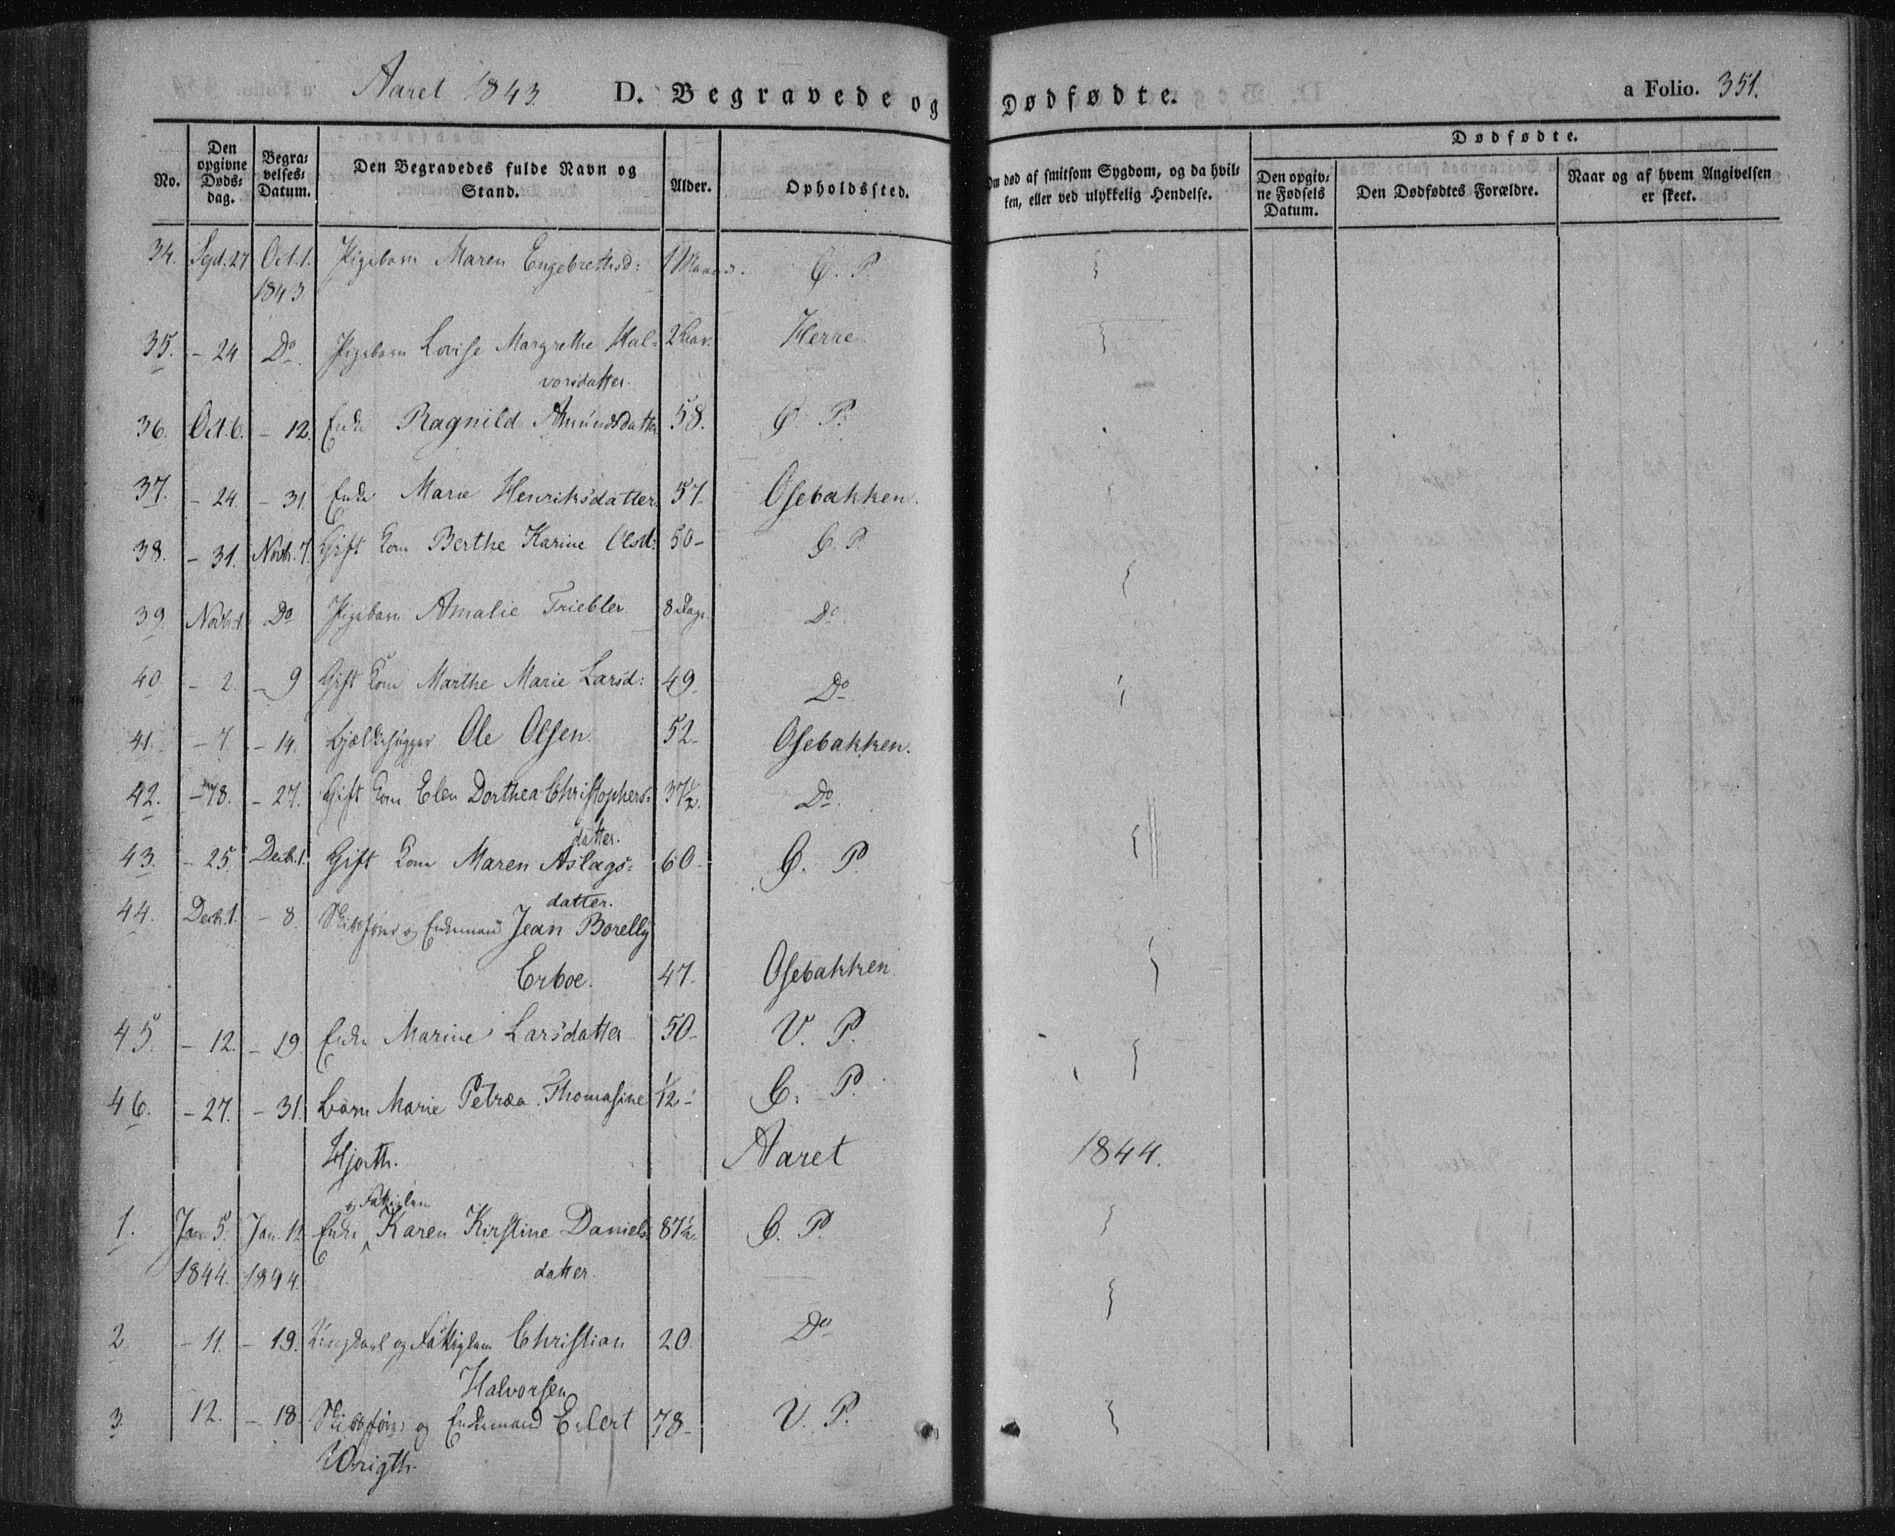 Aaret 1843. D. Begravede og Dødfødte. a Folio. 351.
No. | Den opgivne Døds-dag. | Begra-velses-Datum. | Den Begravedes fulde Navn og Stand. | Alder. | Opholdssted. | Om død af smitsom Sygdom, og da hvil-ken, eller ved ulykkelig Hendelse. | Dødfødte. | Den opgiv-ne Fødsels Datum. | Den Dødfødtes Forældre. | Naar og af hvem Angivelsen er skeet.
34. Sept. 27 Oct. 1. Pigebarn Maren Engebrethsd: 1 Maaned. Ø. P.
1843
35. - 24 Do. Pigebarn Lovise Margrethe Hal- 2 Herre
vorsdatter.
36. Oct. 6. - 12. Enke Ragnild Amundsdatter 58. Ø. P.
37. - 24. - 31. Enke Marie Henriksdatter 57- Osebakken.
38. - 31. Novbr. 7. Gift Kone Berthe Karine Olsd: 50- Ø. P
39. Novbr. 1. Do Pigebarn Amalie Triebler 8 Dage Do
40. - 2. - 9 Gift Kone Marthe Marie Larsd: 49. Do
41. - 7. - 14. Bjælkehugger Ole Olsen. 52- Osebakken.
42. - 18. - 27. Gift Kone Elen Dorthea Christophers- 37½. Do.
datter.
43. - 25. Decbr. 1. Gift Kone Maren Aslags- 60- Ø. P.
datter.
44. Decbr. 1. - 8. Skibsfører og Enkemand Jean Borelly
Erboe. 47- Osebakken
45. - 12. - 19 Enke Marine Larsdatter 50- V. P.
46. - 27. - 31. Barn Marie Petræa Thomasine ½- Ø. P.
Hjorth. Aaret 1844.
og Fattiglem
1. Jan. 5. Jan. 12 Enke Karen Kirstine Daniels- 87½. Ø. P.
1844. 1844. datter.
2 - 11. - 19. Ungkarl og Fattiglem Christian 20. Do
Halvorsen
3. 12. - 18. Skibsfører og Enkemand Eilert 78- V. P.
Wrigth.